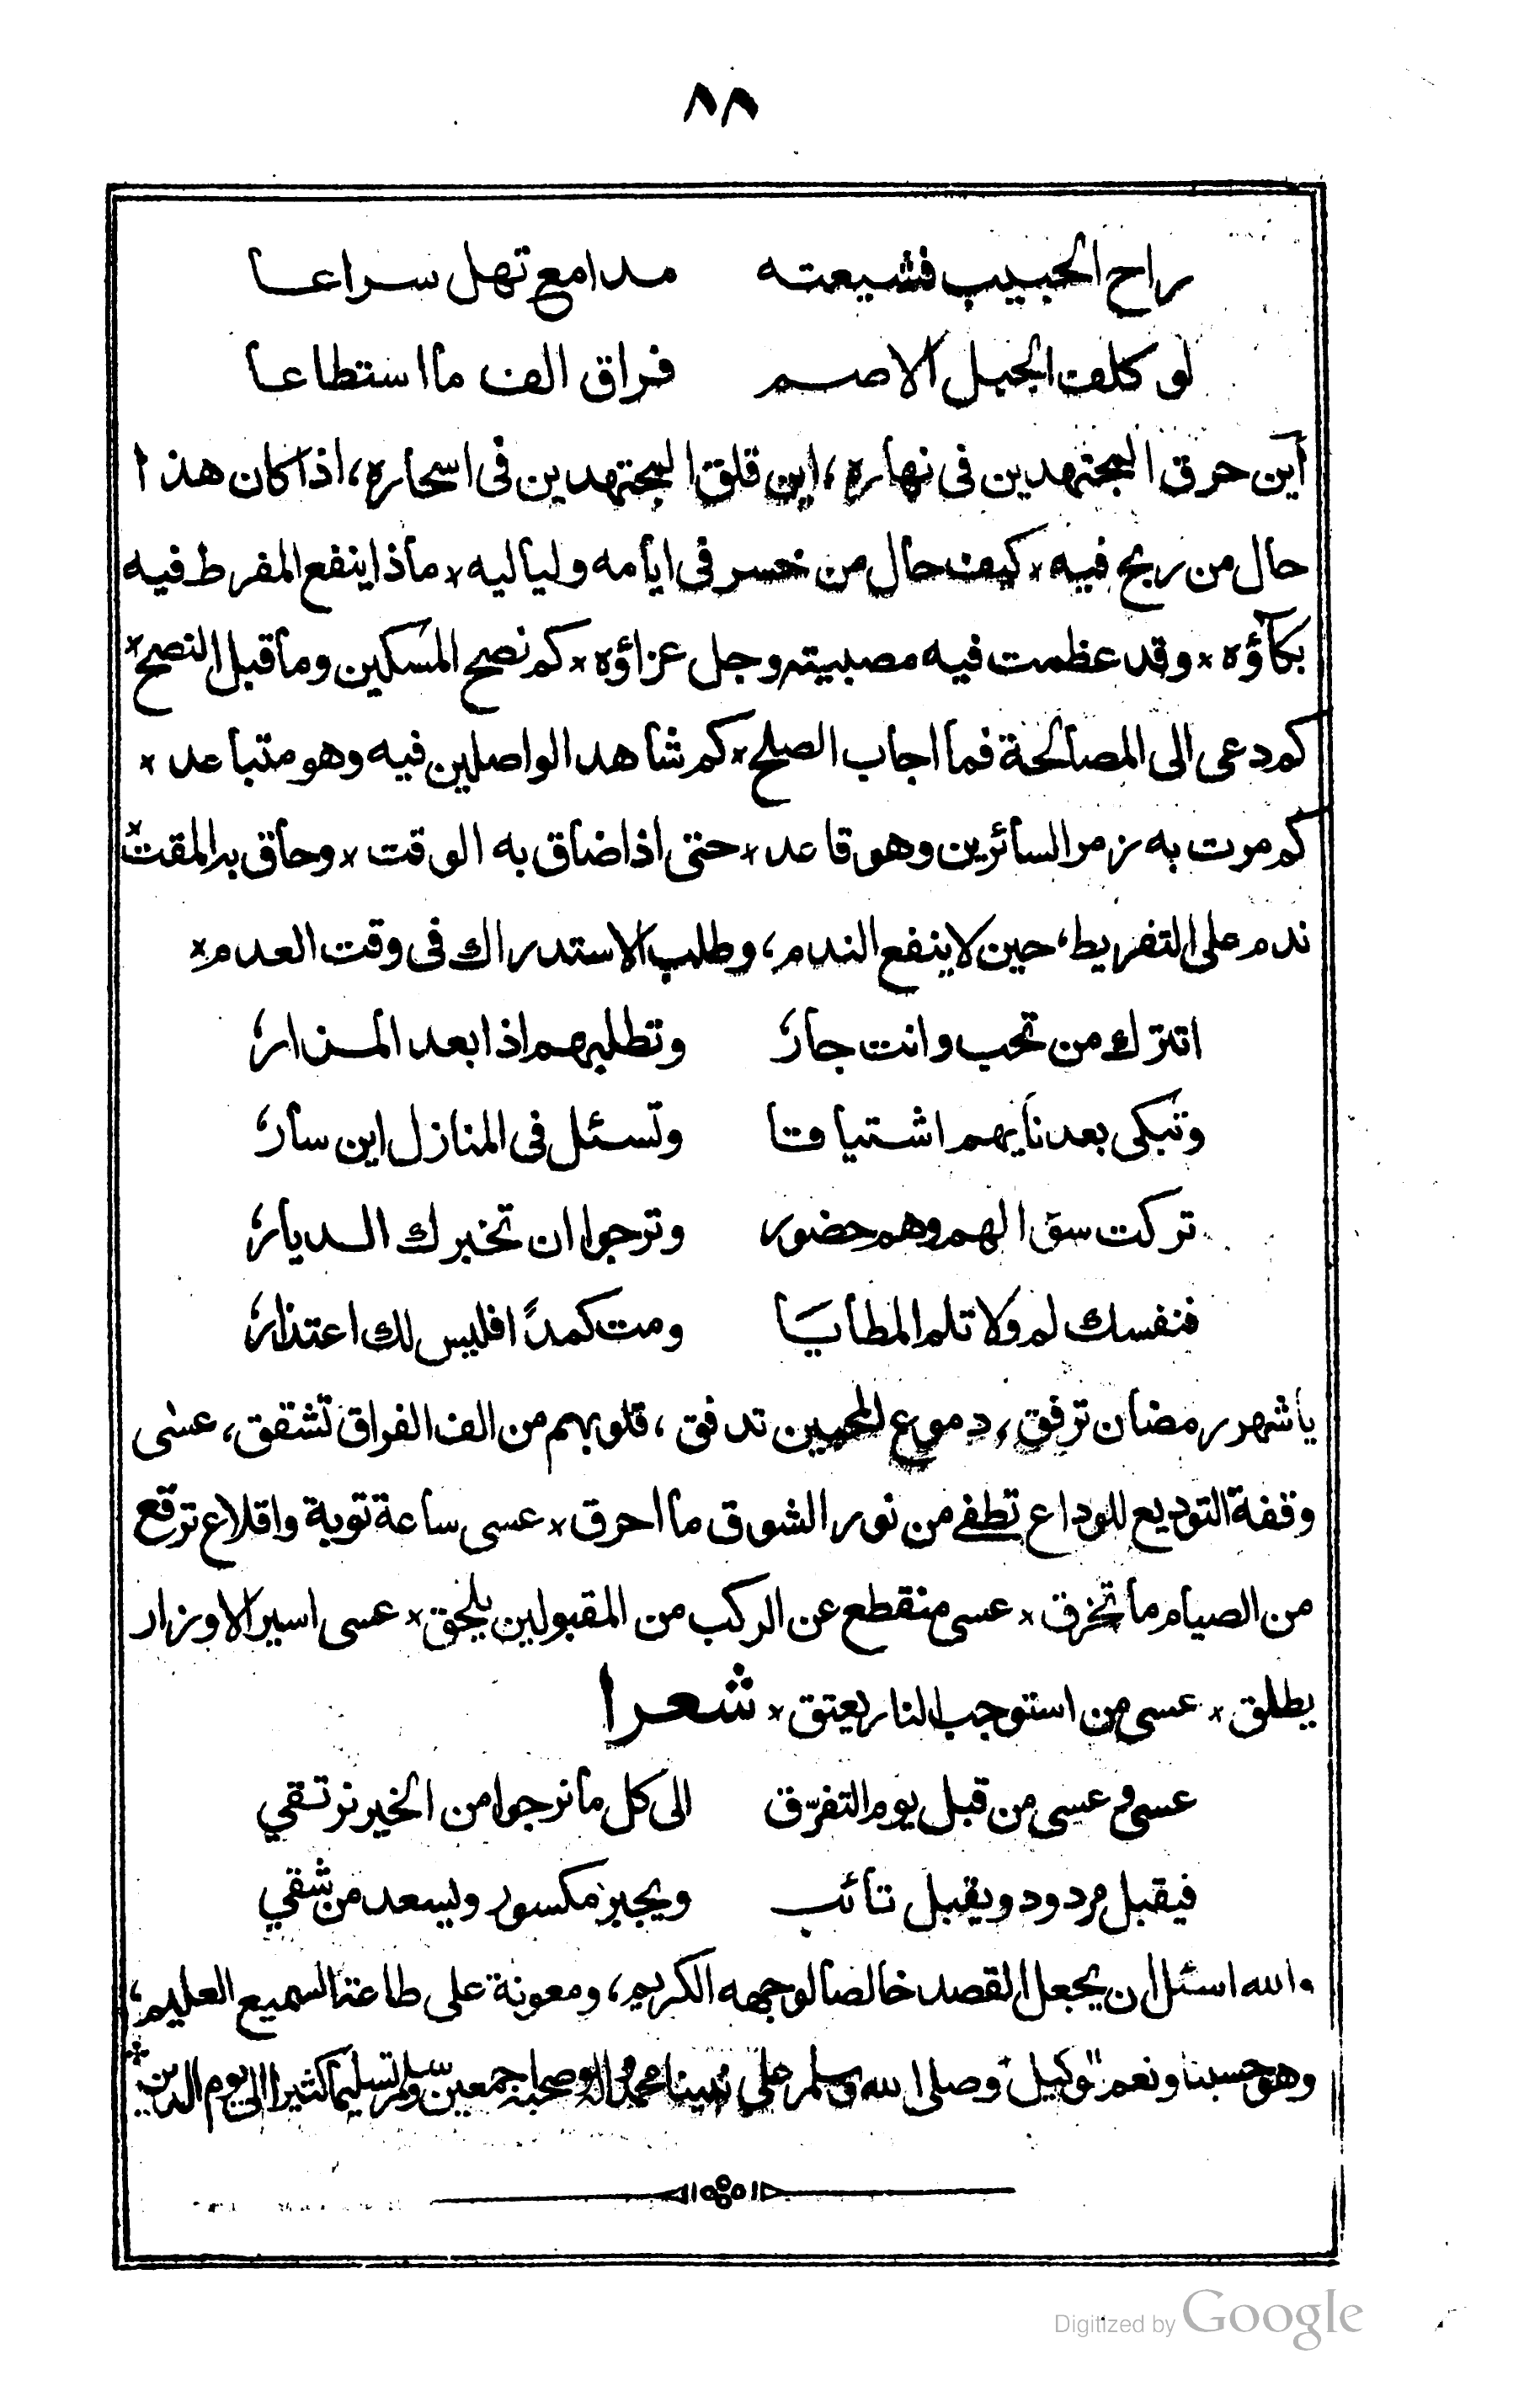 ٨٨
راح الحبيب فشيعته مدامع تهل سراعا
لو كلف الجبل الاصم فراق الف ما استطاعا
اين حرق المجتهدين فى نهاره، اين قلق المجتهدين فى اسحاره، اذا كان هذا
حال من ربح فيه × كيف حال من خسر فى ايامه ولياليه × ماذا ينفع المفرط فيه
بكاؤه × وقد عظمت فيه مصيبته وجل عزاؤه × كم نصح المسكين وما قبل النصح ×
كم دعى الى المصالحة فما اجاب الصلح × كم شاهد الواصلين فيه وهو متباعد ×
كم مرت به زمر السائرين وهو قاعد × حتى اذا ضاق به الوقت × وحاق به المقت ×
ندم على التفريط، حين لا ينفع الندم، وطلب الاستدراك فى وقت العدم ×
اتترك من تحب وانت جار وتطلبهم اذا بعد المزار
وتبكى بعد نايهم اشتياقا وتسئل فى المنازل اين سار
تركت سؤالهم وهم حضور وترجوا ان تخبرك الديار
فنفسك لم ولا تلم المطايا ومت كمدًا فليس لك اعتذار
يا شهر رمضان ترفق، دموع المحبين تدفق، قلوبهم من الف الفراق تشقق، عسٰى
وقفة التوديع للوداع تطفے من نور الشوق ما احرق × عسى ساعة توبة واقلاع ترقع
من الصيام ما تخرق × عسى منقطع عن الركب من المقبولين يلحق × عسى اسير الاوزار
يطلق × عسى من استوجب النار يعتق × شعرا
عسى وعسى من قبل يوم التفرّق الى كل ما نرجوا من الخير نرتقي
فيقبل مردود ويقبل تائب ويجبر مكسور ويسعد من شقي
والله اسئل ان يجعل القصد خالصا لوجهه الكريم، ومعونة على طاعته السميع العليم،
وهو حسبنا ونعم الوكيل وصلى الله وسلم على نبينا محمد واله وصحبه اجمعين وسلم تسليما كثيرا الى يوم الدين
Digitized by Google